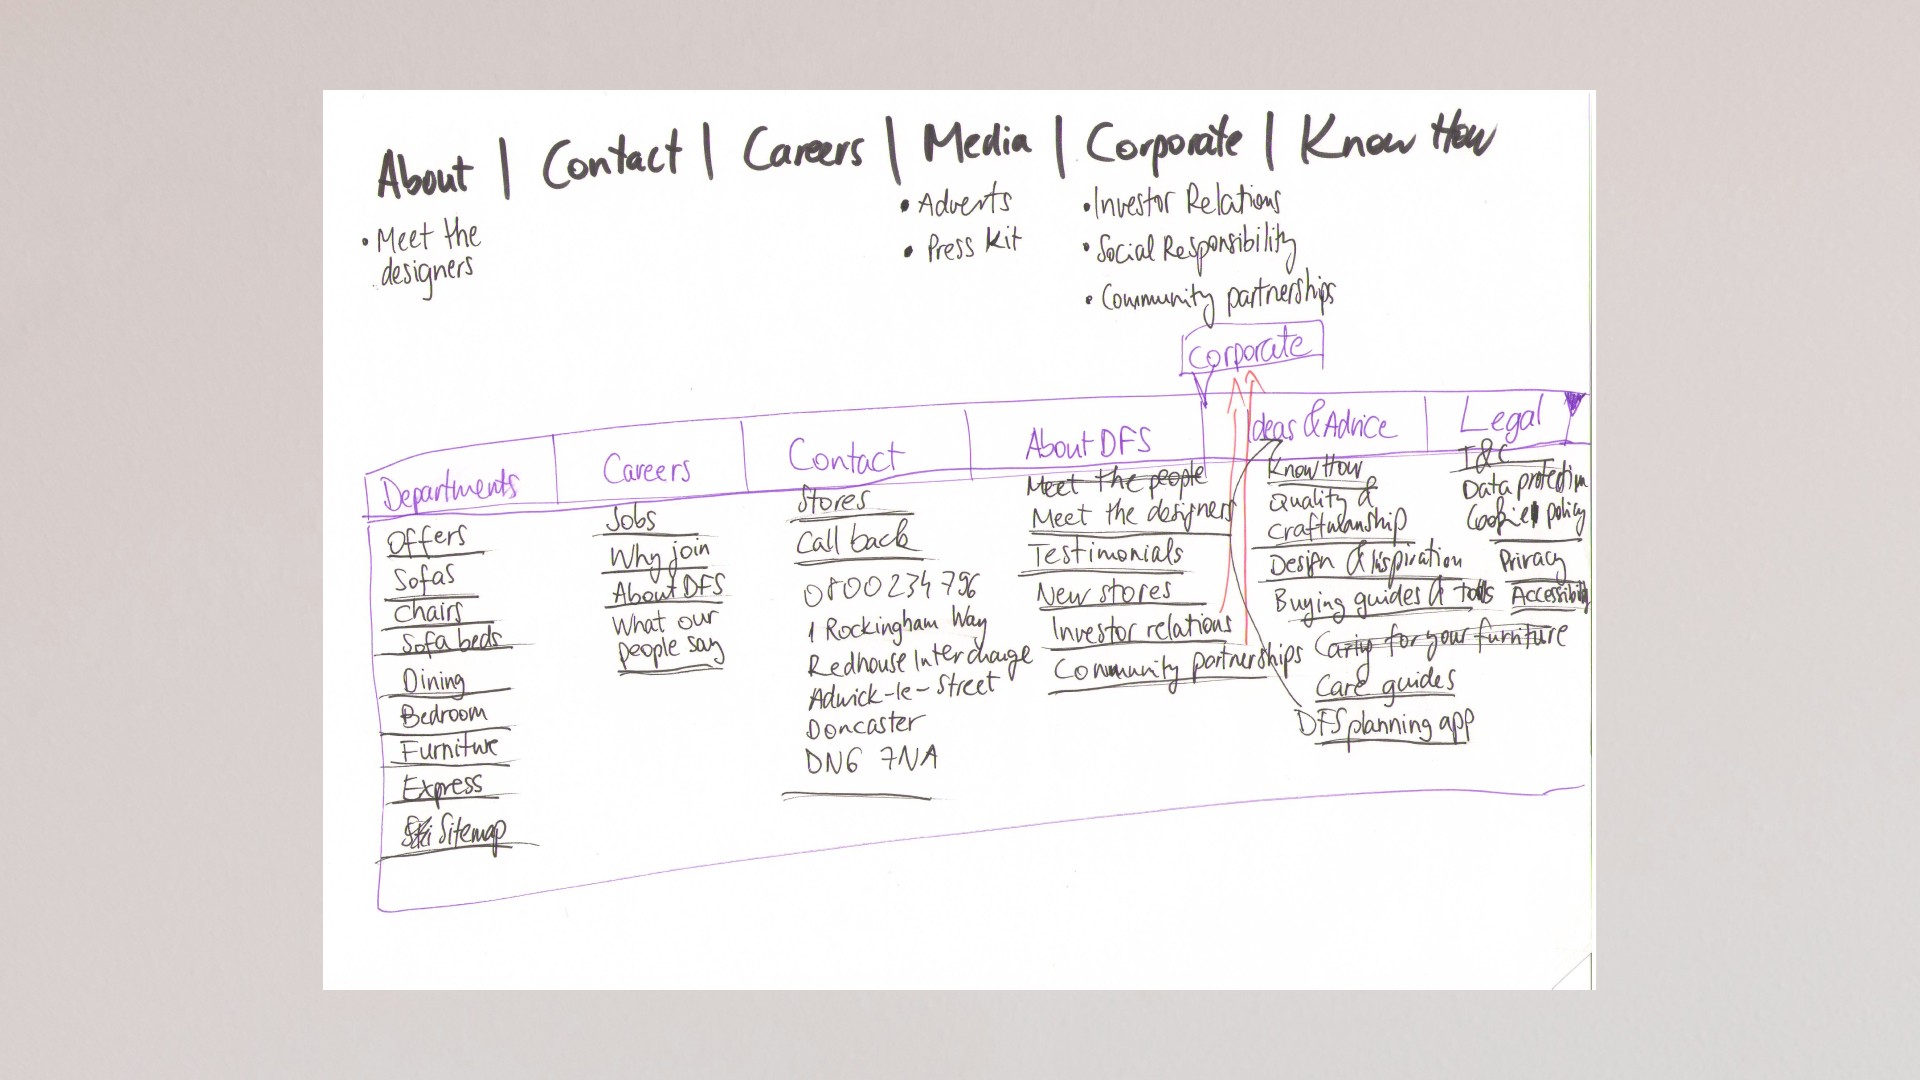 About | Contact | Careers | Media | Corporate | Know How
• Meet the
designers
• Adverts
• Press Kit
• Investor Relations
• Social Responsibility
• Community partnerships
Corporate
Departments
Offers
Sofas
Chairs
Sofa beds
Dining
Bedroom
Furniture
Express
Sitemap
Careers
Jobs
Why join
About DFS
What our
people say
Contact
Stores
Call back
0800 234 796
1 Rockingham Way
Redhouse Interchange
Adwick-le-Street
Doncaster
DN6 7NA
About DFS
Meet the people
Meet the designers
Testimonials
New stores
Investor relations
Community partnerships
Ideas & Advice
Know How
Quality &
Craftmanship
Design & Inspiration
Buying guides & tools
Caring for your furniture
Care guides
DFS planning app
Legal
T&C
Data protection
Cookie policy
Privacy
Accessibility